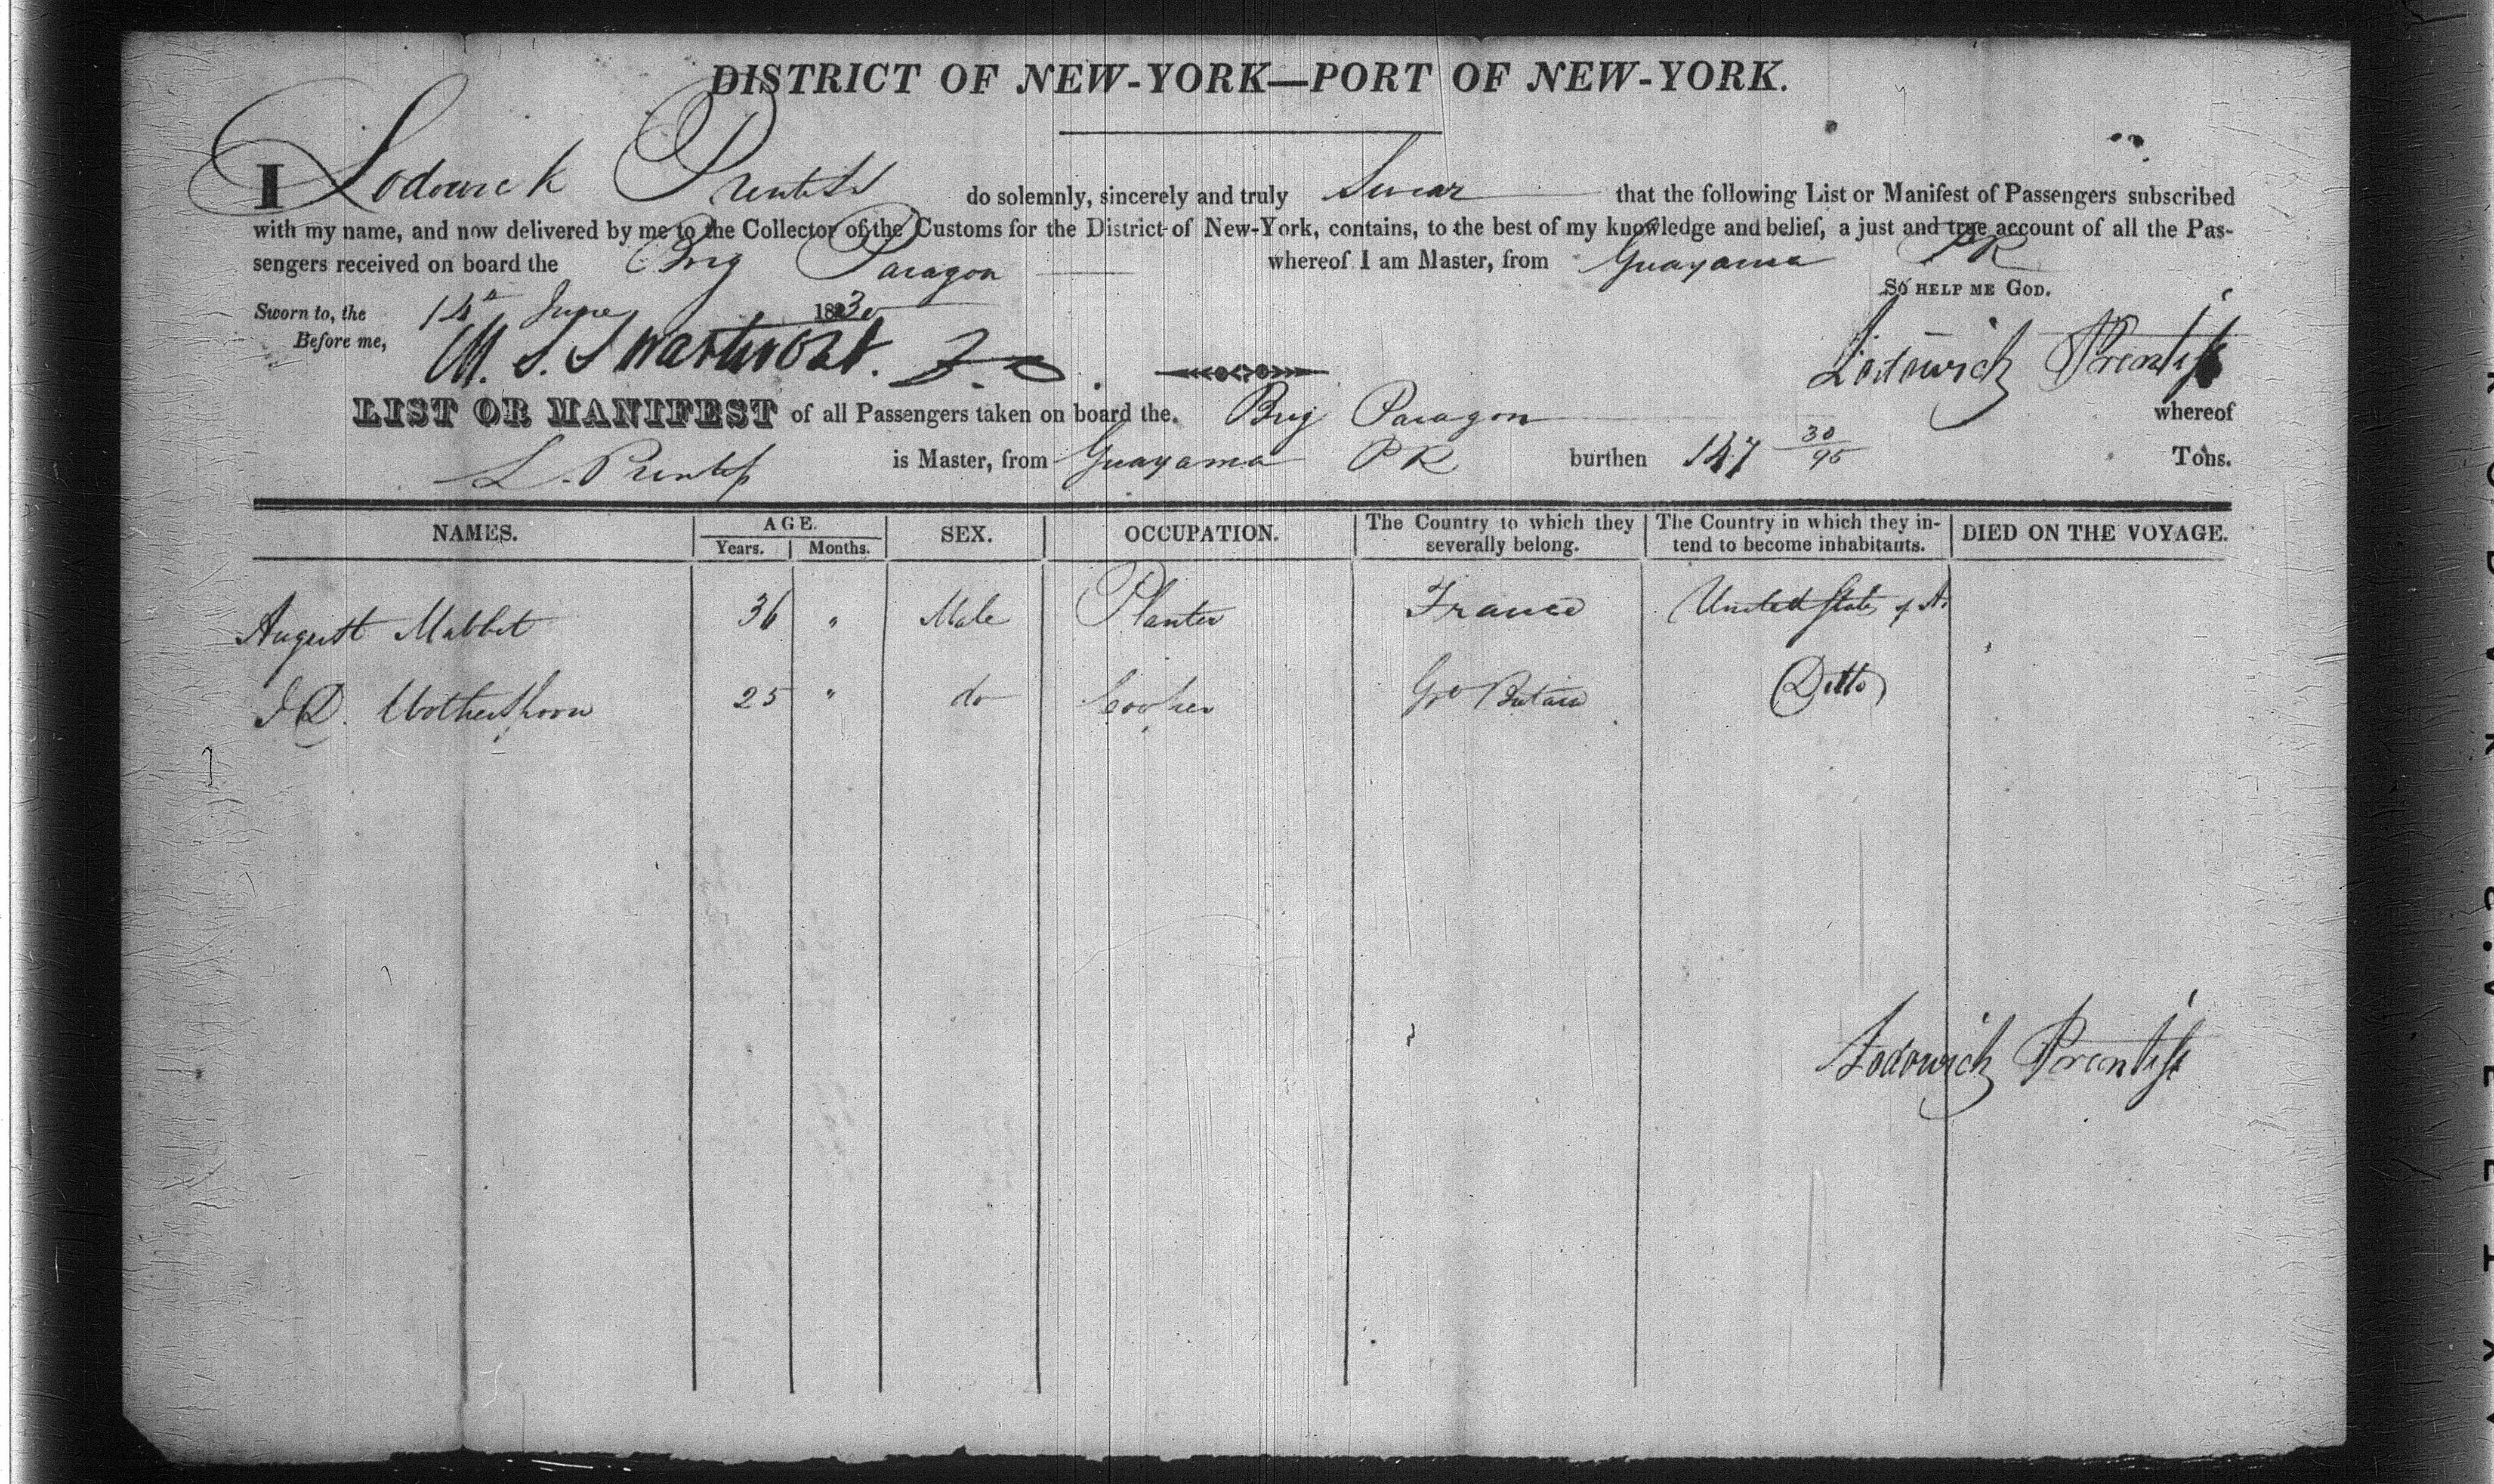 DISTRICT OF NEW-YORK—PORT OF NEW-YORK.
I Lodowick Prentiss do solemnly, sincerely and truly Swear that the following List or Manifest of Passengers subscribed
with my name, and now delivered by me to the Collector of the Customs for the District of New-York, contains, to the best of my knowledge and belief, a just and true account of all the Pas-
sengers received on board the Brig Paragon whereof I am Master, from Guayama PR
SO HELP ME GOD.
Sworn to, the 14th June 1830
Before me, M. S. Swartwout.
Lodowick Prentiss
LIST OR MANIFEST of all Passengers taken on board the Brig Paragon whereof
L. Prentiss is Master, from Guayama PR burthen 147 30/95 Tons.
NAMES. AGE. Years. Months. SEX. OCCUPATION. The Country to which they severally belong. The Country in which they in-tend to become inhabitants. DIED ON THE VOYAGE.
August Mabbet 36 " Male Planter France United States of A.
J D. Wotherspoon 25 " do Cooper Gt Britain Ditto
Lodowick Prentiss